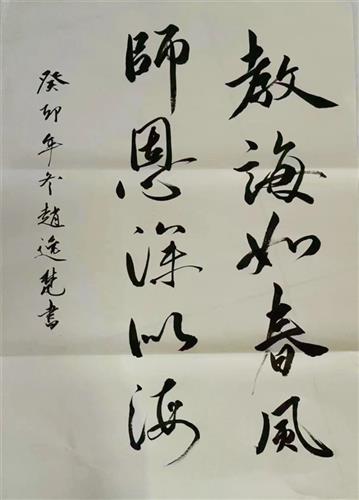 教誨如春風
師恩深似海
癸卯年冬趙逸梵書